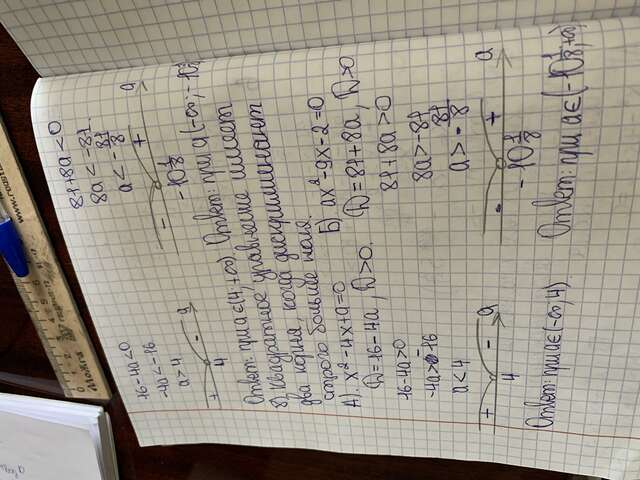 16-4a<0
-4a<-16
a>4
+ - a
4
Ответ: при a∈(4;+∞)
81+8a<0
8a<-81
a<-81/8
- + a
-10 1/8
Ответ: при a∈(-∞;-10 1/8)
8) Квадратное уравнение имеет
два корня, когда дискриминант
строго больше нуля.
А) x²-4x+a=0
D=16-4a, D>0.
16-4a>0
-4a>-16
a<4
+ - a
4
Ответ: при a∈(-∞;4).
Б) ax²-9x-2=0
D=81+8a, D>0
81+8a>0
8a>-81
a>-81/8
- + a
-10 1/8
Ответ: при a∈(-10 1/8;+∞)
Можга